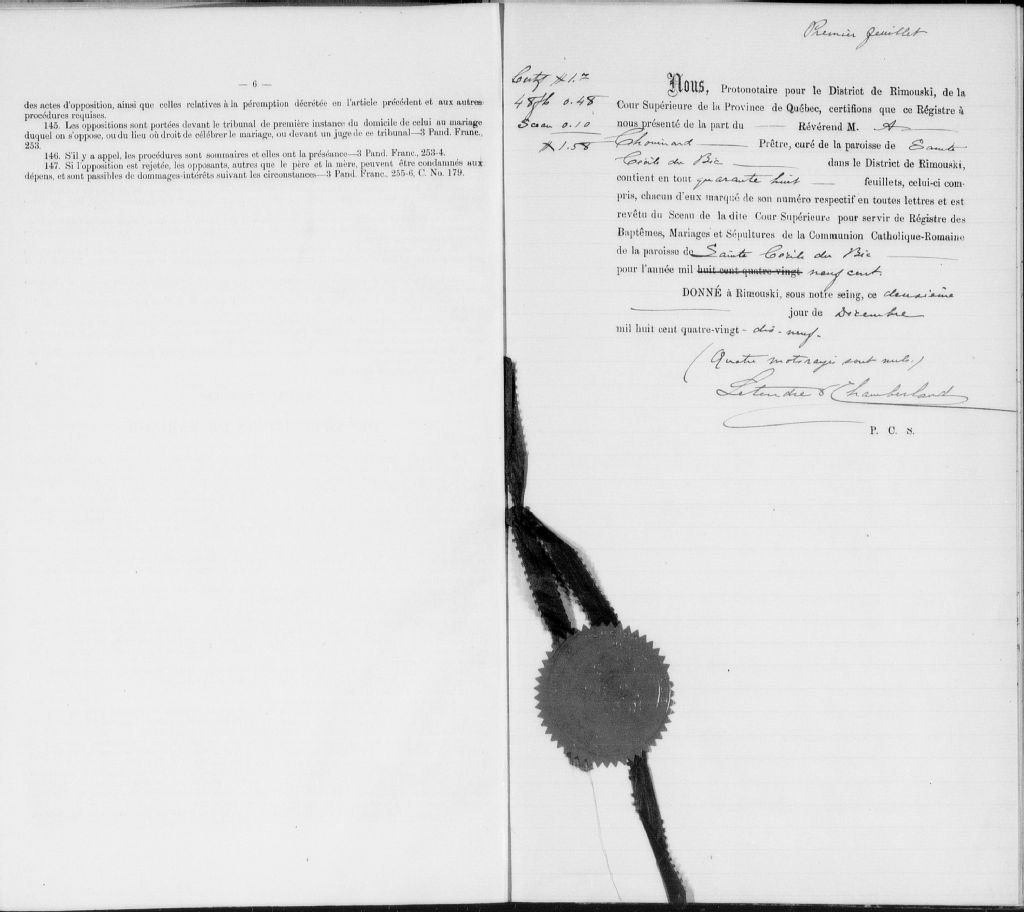 — 6 —
des actes d'opposition, ainsi que celles relatives à la péremption décrétée en l'article précédent et aux autres
procédures requises.
145. Les oppositions sont portées devant le tribunal de première instance du domicile de celui au mariage
duquel on s'oppose, ou du lieu où droit de célébrer le mariage, ou devant un juge de ce tribunal—3 Pand. Franc.,
253.
146. S'il y a appel, les procédures sont sommaires et elles ont la préséance—3 Pand. Franc., 253-4.
147. Si l'opposition est rejetée, les opposants, autres que le père et la mère, peuvent être condamnés aux
dépens, et sont passibles de dommages-intérêts suivant les circonstances—3 Pand. Franc., 255-6, C. No. 179.
Premier feuillet
$1.
48 0.48
Sceau 0.10
$1.58
Nous, Protonotaire pour le District de Rimouski, de la
Cour Supérieure de la Province de Québec, certifions que ce Régistre à
nous présenté de la part du Révérend M. A
Chouinard Prêtre, curé de la paroisse de Sainte
Cécile du Bic dans le District de Rimouski,
contient en tout quarante huit feuillets, celui-ci com-
pris, chacun d'eux marqué de son numéro respectif en toutes lettres et est
revêtu du Sceau de la dite Cour Supérieure pour servir de Régistre des
Baptêmes, Mariages et Sépultures de la Communion Catholique-Romaine
de la paroisse de Sainte Cécile du Bic
pour l'année mil huit cent quatre-vingt neuf cent
DONNÉ à Rimouski, sous notre seing, ce deuxième
jour de Décembre
mil huit cent quatre-vingt - dix-neuf.
(Quatre mots rayés sont nuls.)
Letendre & Chamberland
P. C. S.